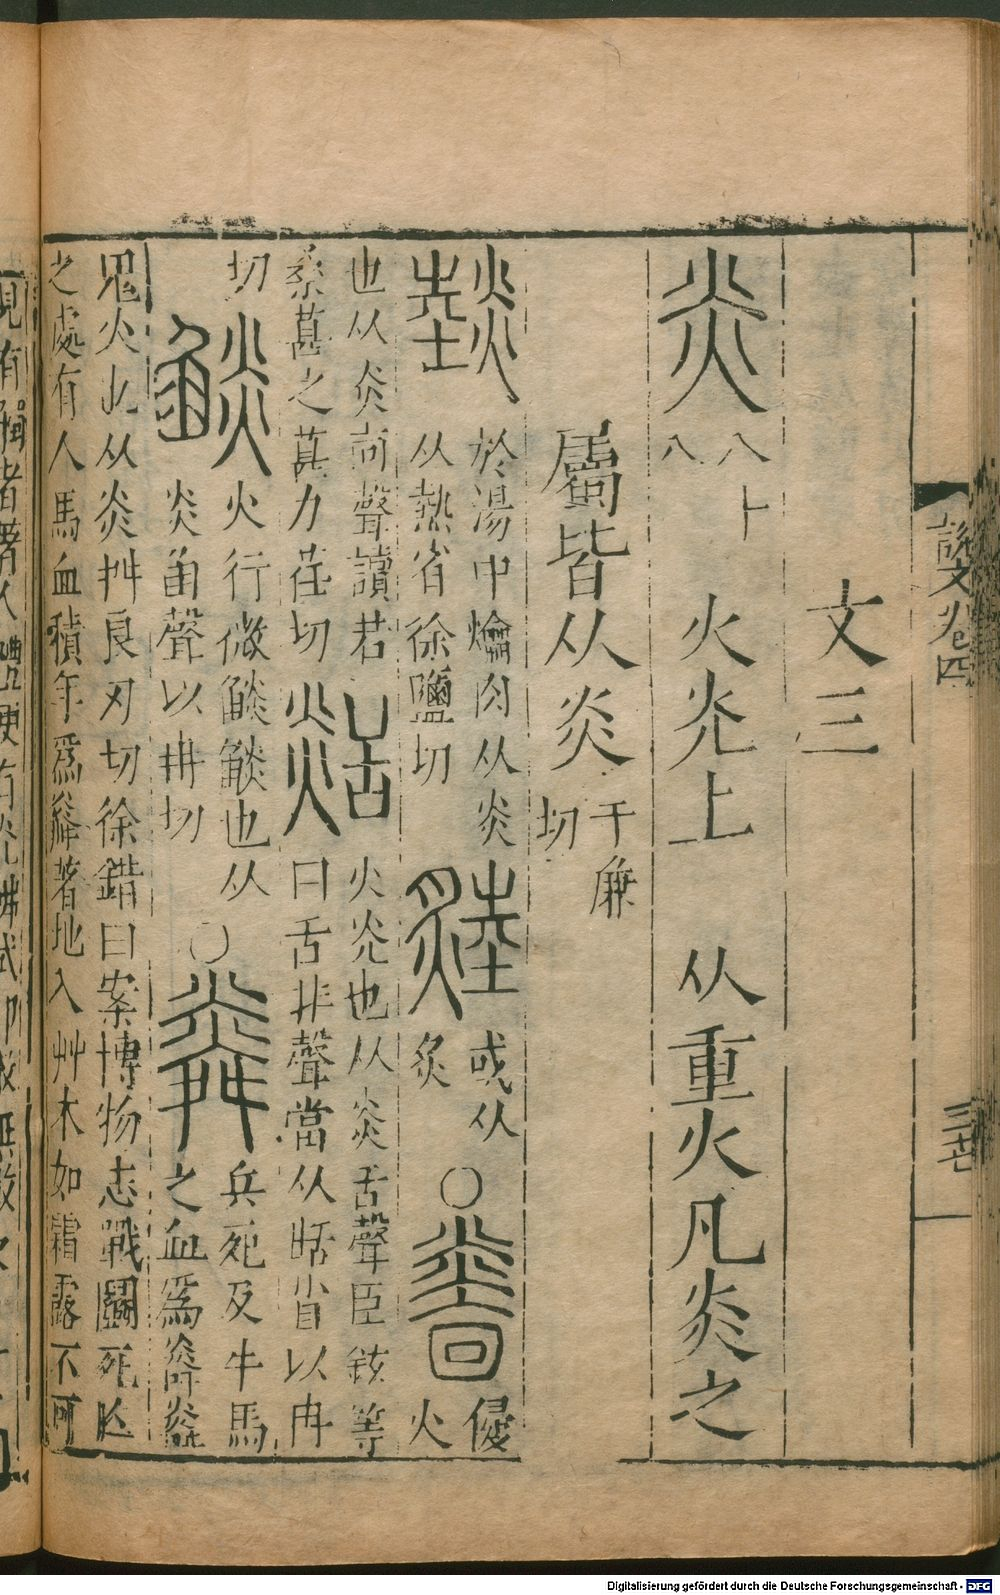 說文卷四
文三
炎 八十
八
火灮上 从重火凡炎之
屬皆从炎 于廉
切
燅 於湯中爚肉从炎
从熱省徐鹽切
或从
炙
○ 侵
火
也从炎㐭聲讀若
桑葚之葚力荏切
火灮也从炎舌聲臣鉉等
曰舌非聲當从甛省以冉
切
燄 火行微燄燄也从
炎臽聲以冉切
○ 粦 兵死及牛馬
之血爲粦粦
鬼火也从炎舛良刃切徐鍇曰案博物志戰鬬死亾
之處有人馬血積年爲粦著地入艸木如霜露不可
見有觸者著人體便有光拂拭即散無數
Digitalisierung gefördert durch die Deutsche Forschungsgemeinschaft - DFG